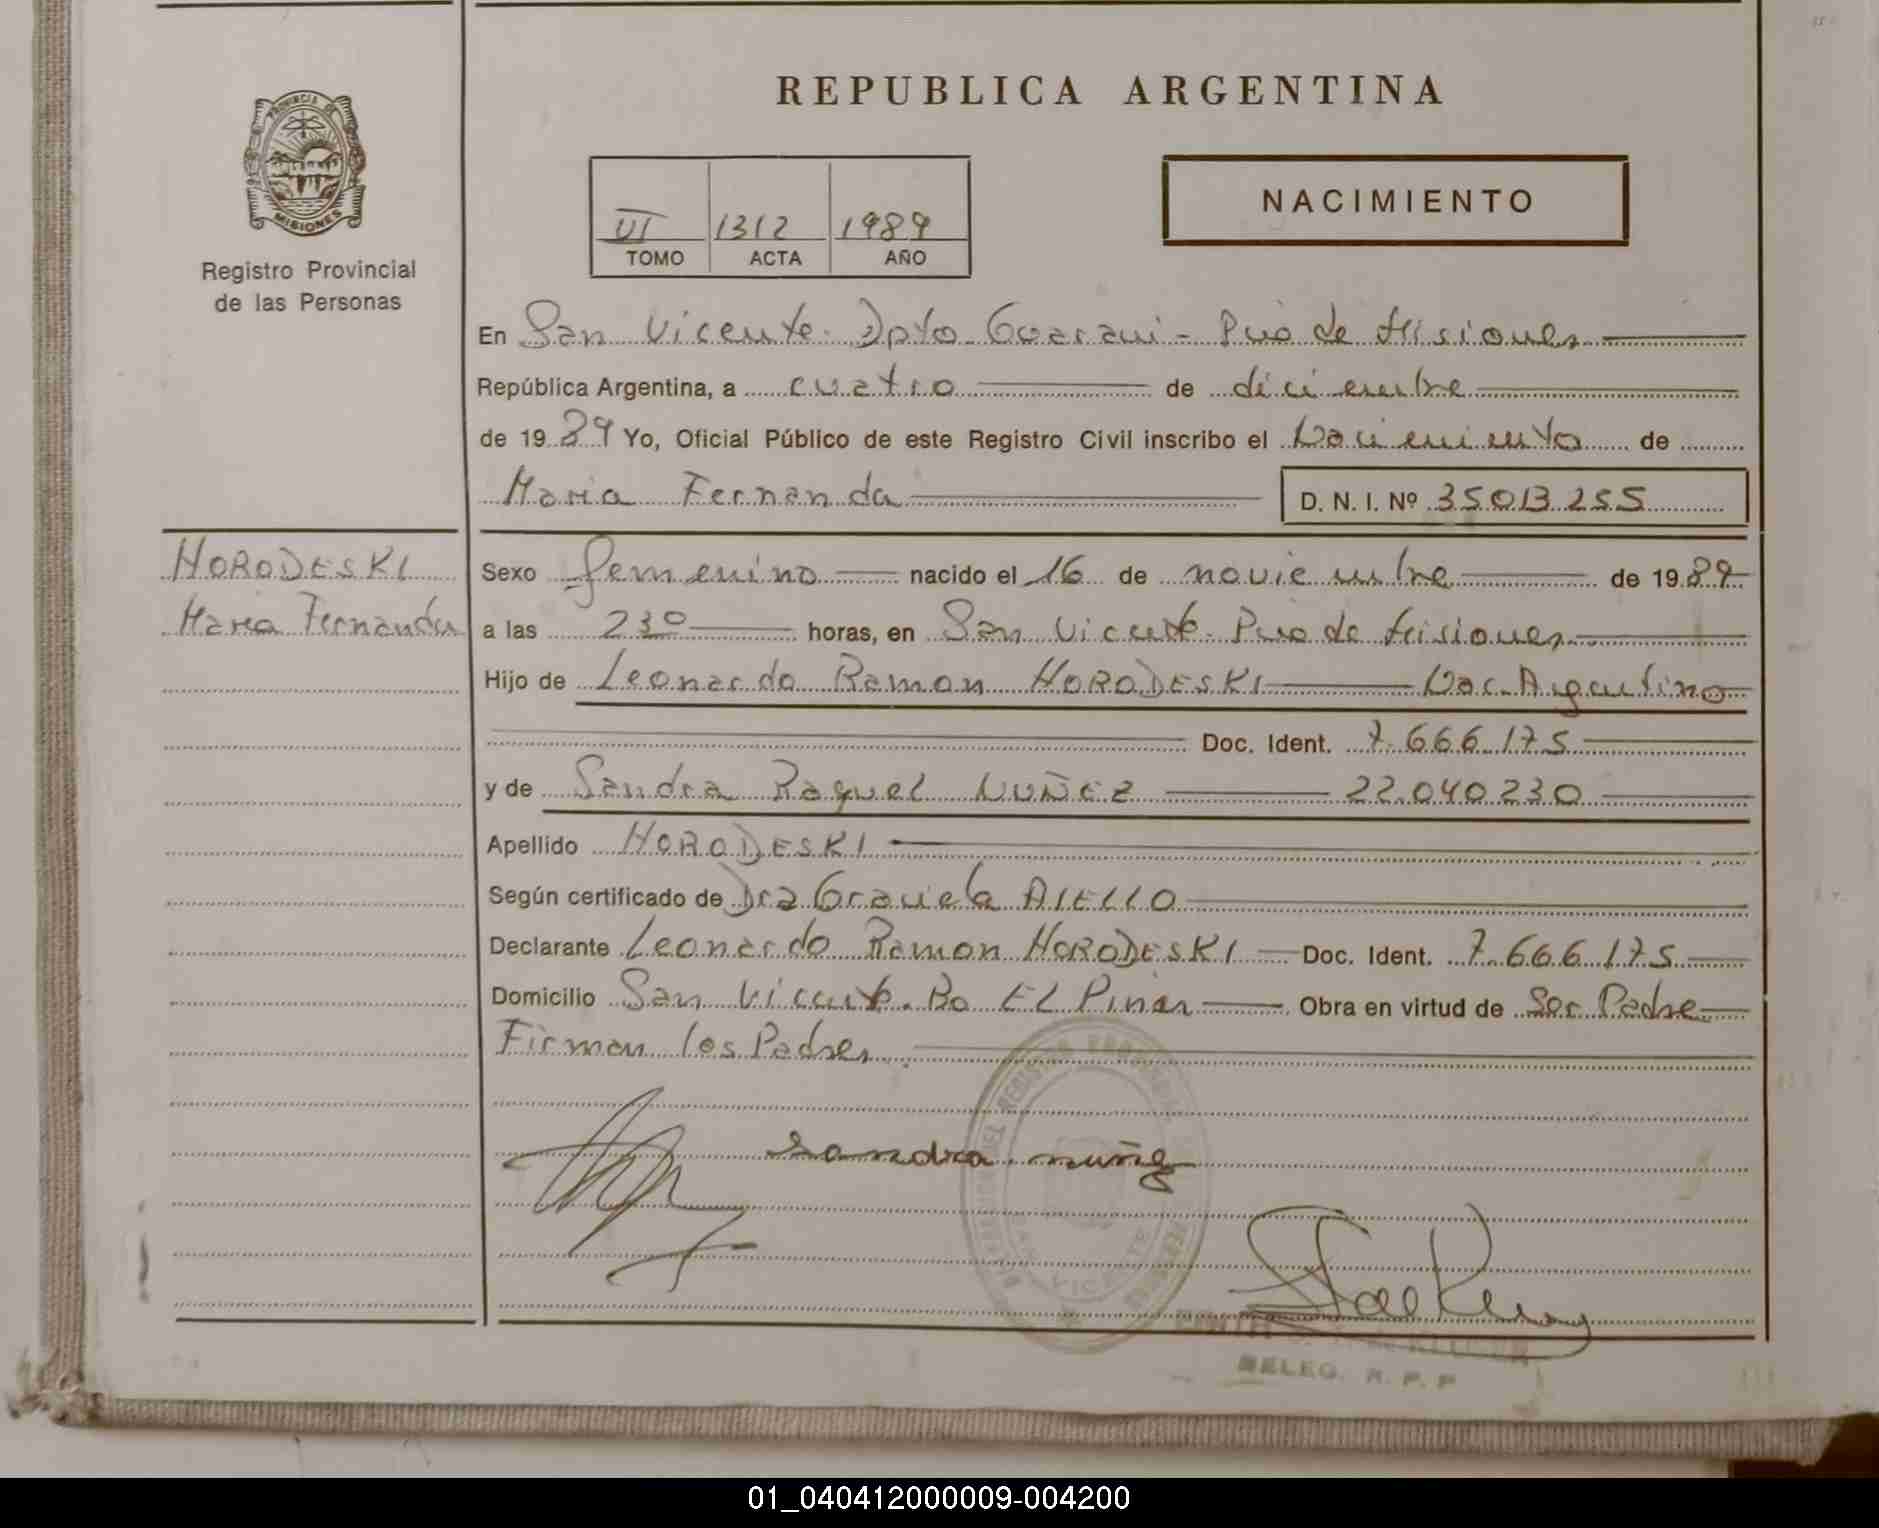 REPUBLICA ARGENTINA
PROVINCIA DE
MISIONES
Registro Provincial
de las Personas
VI 1312 1989
TOMO ACTA AÑO
NACIMIENTO
En San Vicente. Dpto. Guarani - Pcia de Misiones
República Argentina, a cuatro de diciembre
de 1989 Yo, Oficial Público de este Registro Civil inscribo el Nacimiento de
Maria Fernanda D. N. I. Nº 35013255
HORODESKI
Maria Fernanda
Sexo femenino nacido el 16 de noviembre de 1989
a las 2 30 horas, en San Vicente. Pcia de Misiones
Hijo de Leonardo Ramon HORODESKI Nac. Argentino
Doc. Ident. 7.666.175
y de Sandra Raquel NUÑEZ 22.040.230
Apellido HORODESKI
Según certificado de Dra Graciela AIELLO
Declarante Leonardo Ramon HORODESKI Doc. Ident. 7.666.175
Domicilio San Vicente. Bo EL Pinar Obra en virtud de Ser Padre
Firman los Padres.
Sandra nuñez
SAN VICENTE
DELEG. R. P. P
01_040412000009-004200